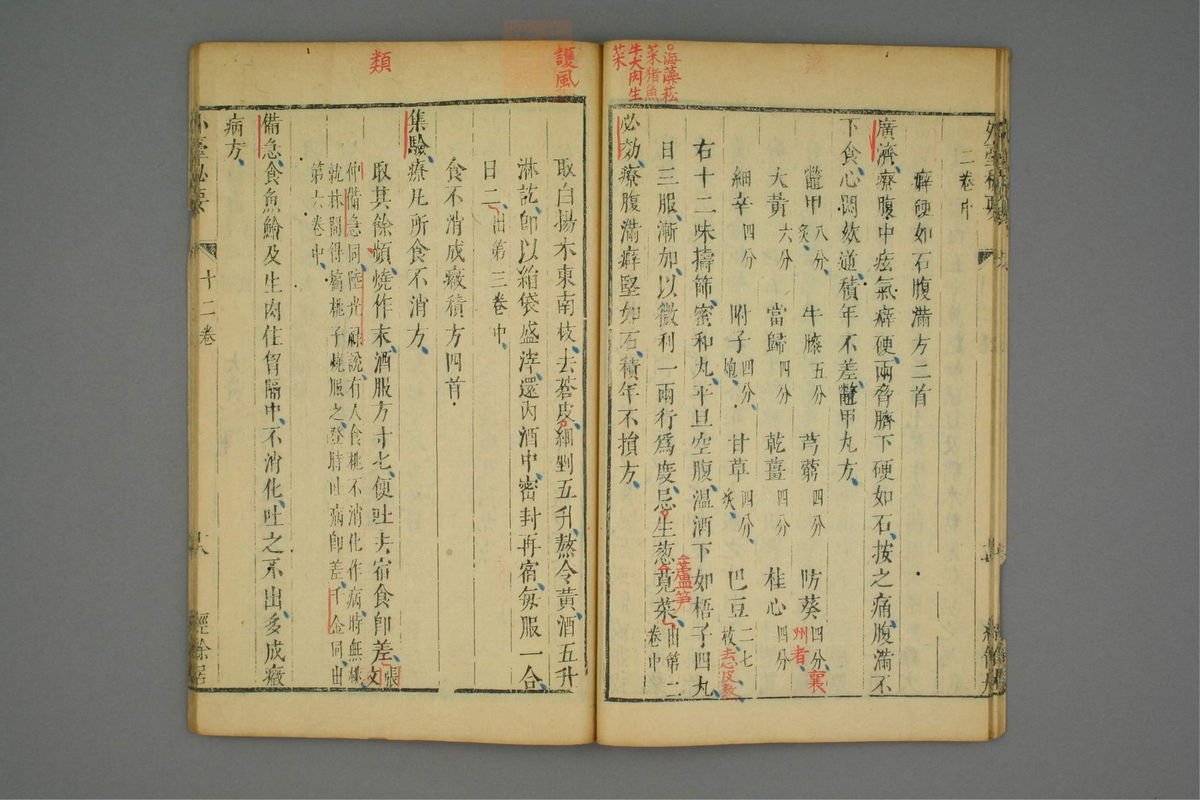 二卷中
癖硬如石腹滿方二首
廣濟療腹中痃氣癖硬兩脅臍下硬如石按之痛腹滿不
下食心悶欬逆積年不差鼈甲丸方
鼈甲八分炙 牛膝五分 芎藭四分 防葵四分
州者 襄
大黃六分 當歸四分 乾薑四分 桂心四分
細辛四分 附子四分炮 甘草四分炙 巴豆二七枚
去心皮熬
右十二味擣篩蜜和丸平旦空腹溫酒下如梧子四丸
日三服漸加以微利一兩行爲度忌生葱莧菜出第二卷中
蘆笋
。海藻菘
菜猪魚
牛犬肉生
菜
必効療腹滿癖堅如石積年不損方
護風
取白楊木東南枝去蒼皮細剉五升熬令黃酒五升
淋訖卽以絹袋盛滓還內酒中密封再宿每服一合
日二出第三卷中
食不消成癥積方四首
集驗療凡所食不消方
類
取其餘煩燒作末酒服方寸匕便吐去宿食卽差張文
仲備急同陸光祿說有人食桃不消化作病時無桃
就林閒得槁桃子燒服之登時吐病卽差千金同出
第六卷中
備急食魚鱠及生肉住胷膈中不消化吐之不出多成癥
病方
十二卷
十八
經餘居